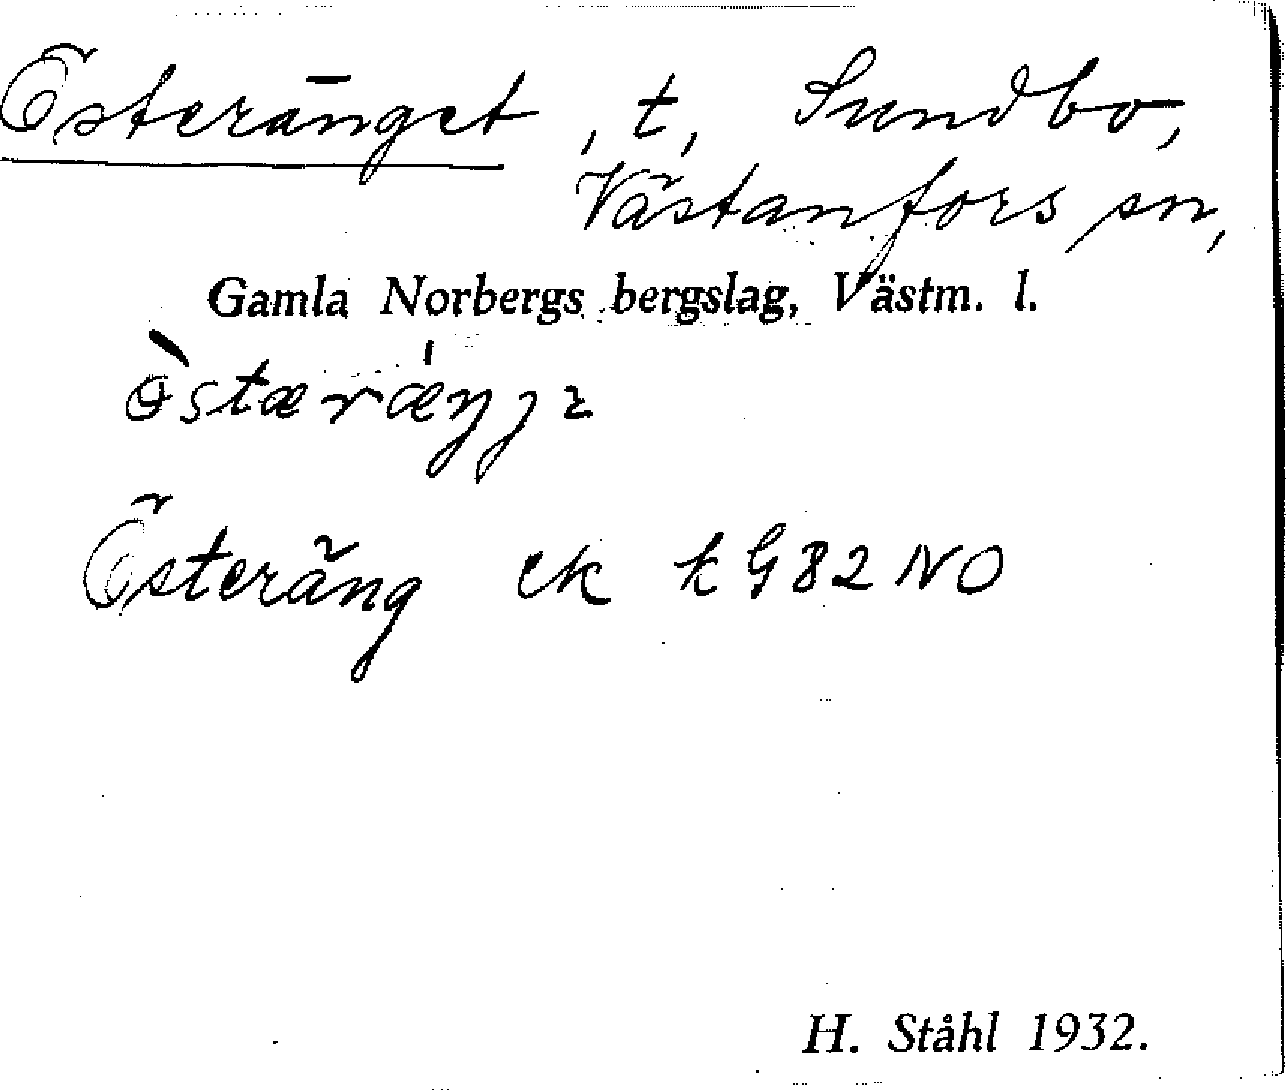 Österänget, t, Sundbo,
Västanfors sn,
Gamla Norbergs bergslag, Västm. l.
Österäng ek k G82 NO
H. Ståhl 1932.